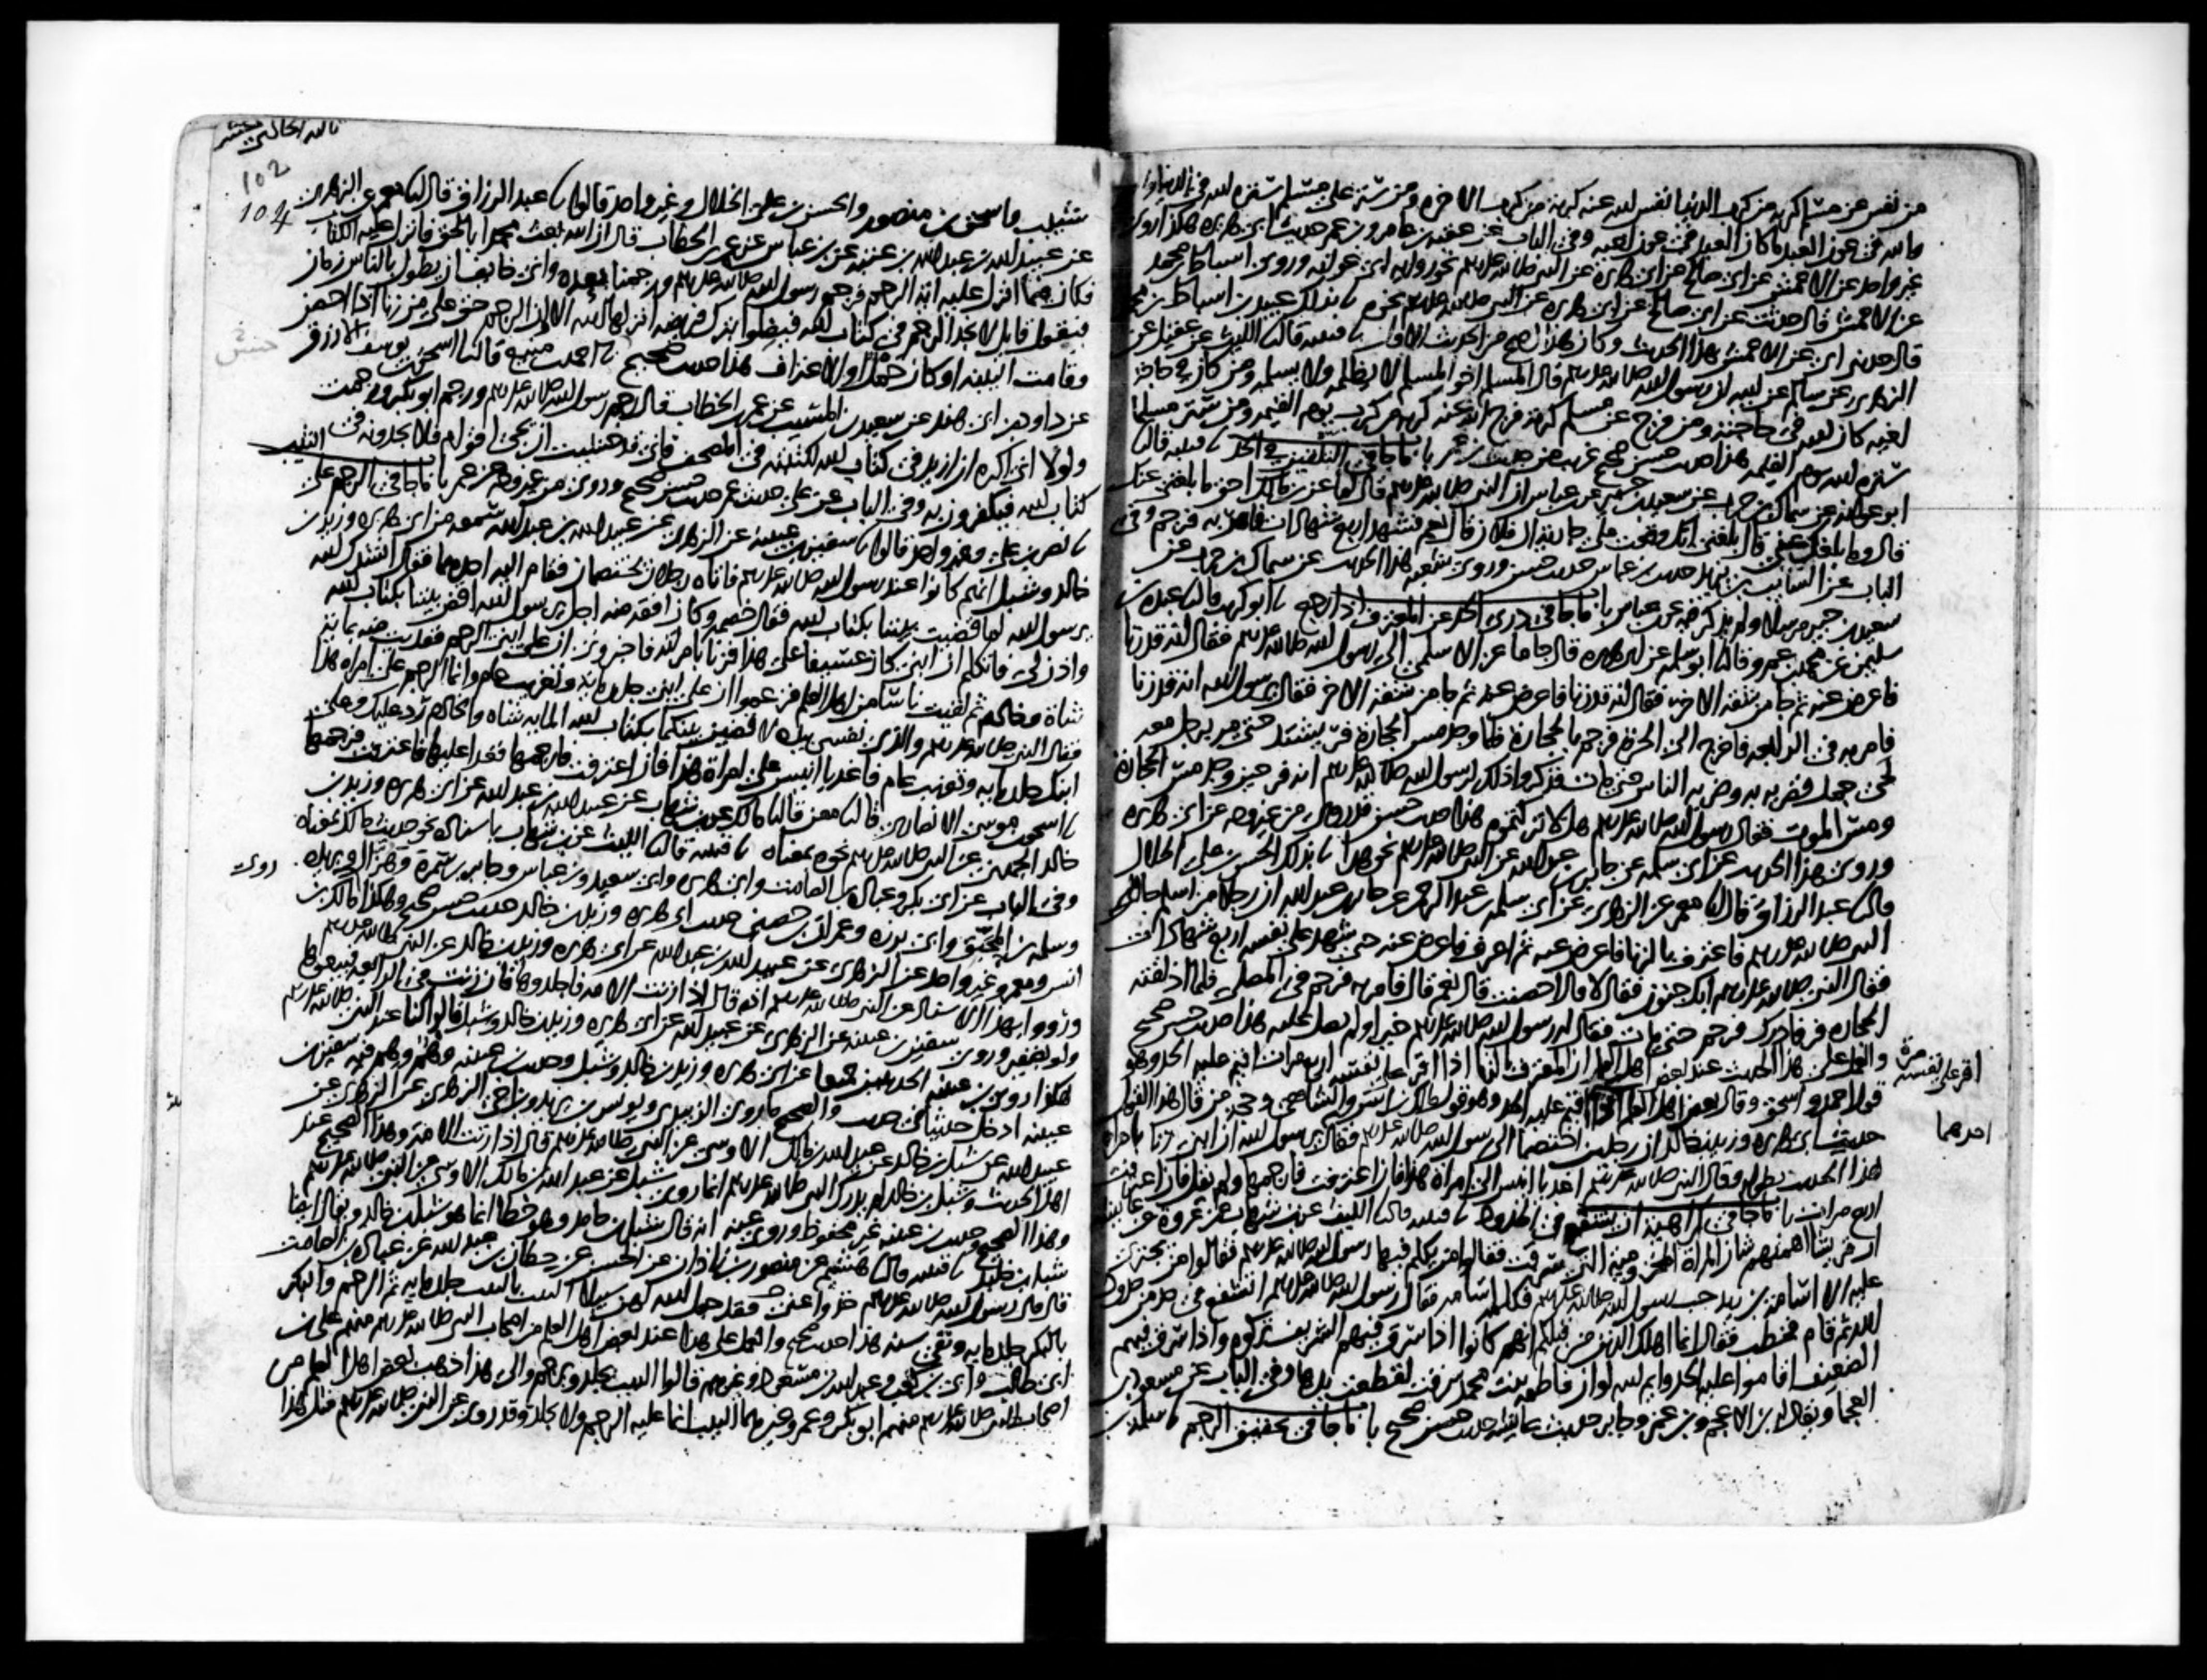 من نفس عن مسلم كربة من كرب الدنيا نفس الله عنه كربة من كرب الاخرة ومن ستر على مسلم ستره الله في الدنيا والاخرة
والله في عون العبد ما كان العبد في عون اخيه وفي الباب عن عقبة بن عامر وبن عمر حديث ابي هريرة هكذا روى
غير واحد عن الاعمش عن ابي صالح عن ابي هريرة عن النبي صلى الله عليه وسلم نحو رواية ابي عوانة وروى اسباط بن محمد
عن الاعمش قال حدثت عن ابي صالح عن ابي هريرة عن النبي صلى الله عليه وسلم نحوه ثنا بذلك عبيد بن اسباط بن محمد
قال حدثني ابي عن الاعمش بهذا الحديث وكان هذا اصح من الحديث الاول ثنا قتيبة قال ثنا الليث عن عقيل عن
الزهري عن سالم عن ابيه ان رسول الله صلى الله عليه وسلم قال المسلم اخو المسلم لا يظلمه ولا يسلمه ومن كان في حاجة
اخيه كان الله في حاجته ومن فرج عن مسلم كربة فرج الله عنه كربة من كرب يوم القيمة ومن ستر مسلما
ستره الله يوم القيمة هذا حديث حسن صحيح غريب من حديث بن عمر باب ما جا في التلقين في الحد ثنا قتيبة قال ثنا
ابو عوانة عن سماك بن حرب عن سعيد بن جبير عن بن عباس ان النبي صلى الله عليه وسلم قال لماعز بن مالك احق ما بلغني عنك
قال وما بلغك عني قال بلغني انك وقعت على جارية ال فلان قال نعم فشهد اربع شهادات فامر به فرجم وفي
الباب عن السايب بن يزيد حديث بن عباس حديث حسن وروى شعبة هذا الحديث عن سماك بن حرب عن
سعيد بن جبير مرسلا ولم يذكر فيه عن بن عباس باب ما جا في درء الحد عن المعترف اذا رجع ثنا ابو كريب قال ثنا عبدة بن
سليمن عن محمد بن عمرو قال ثنا ابو سلمة عن ابي هريرة قال جا ماعز الاسلمي الى رسول الله صلى الله عليه وسلم فقال انه قد زنا
فاعرض عنه ثم جا من شقه الاخر فقال انه قد زنا فاعرض عنه ثم جا من شقه الاخر فقال يرسول الله انه قد زنا
فامر به في الرابعة فاخرج الى الحرة فرجم بالحجارة فلما وجد مس الحجارة فر يشتد حتى مر برجل معه
لحي جمل فضربه به وضربه الناس حتى مات فذكروا ذلك لرسول الله صلى الله عليه وسلم انه فر حين وجد مس الحجارة
ومس الموت فقال رسول الله صلى الله عليه وسلم هلا تركتموه هذا حديث حسن قد روي من غير وجه عن ابي هريرة
وروى هذا الحديث عن ابي سلمة عن جابر بن عبد الله عن النبي صلى الله عليه وسلم نحو هذا ثنا بذلك الحسن بن علي الخلال
قال ثنا عبد الرزاق قال ثنا معمر عن الزهري عن ابي سلمة بن عبد الرحمن عن جابر بن عبد الله ان رجلا من اسلم جا الى
النبي صلى الله عليه وسلم فاعترف بالزنا فاعرض عنه ثم اعترف فاعرض عنه حتى شهد على نفسه اربع شهادات
فقال النبي صلى الله عليه وسلم ابك جنون فقال لا قال احصنت قال نعم قال فامر به فرجم في المصلى فلما اذلقته
الحجارة فر فادرك فرجم حتى مات فقال له رسول الله صلى الله عليه وسلم خيرا ولم يصل عليه هذا حديث حسن صحيح
والعمل على هذا الحديث عند بعض اهل العلم ان المعترف بالزنا اذا اقر على نفسه اربع مرات اقيم عليه الحد وهو
قول احمد واسحق وقال بعض اهل العلم اذا اقيم عليه الحد وهو قول مالك بن انس والشافعي وحجة من قال هذا القول
حديث ابي هريرة وزيد بن خالد ان رجلين اختصما الى رسول الله صلى الله عليه وسلم فقال يرسول الله ان ابني زنا بامراة
هذا الحديث بطوله وقال النبي صلى الله عليه وسلم اغد يا انيس الى امراة هذا فان اعترفت فارجمها ولم يقل فان اعترفت
اربع مرات باب ما جا في كراهية ان يشفع في الحدود ثنا قتيبة قال ثنا الليث عن بن شهاب عن عروة عن عايشة
ان قريشا اهمهم شان المراة المخزومية التي سرقت فقالوا من يكلم فيها رسول الله صلى الله عليه وسلم فقالوا من يجترئ
عليه الا اسامة بن زيد حب رسول الله صلى الله عليه وسلم فكلمه اسامة فقال رسول الله صلى الله عليه وسلم اتشفع في حد من حدود
الله ثم قام فخطب فقال انما اهلك الذين من قبلكم انهم كانوا اذا سرق فيهم الشريف تركوه واذا سرق فيهم
الضعيف اقاموا عليه الحد وايم الله لو ان فاطمة بنت محمد سرقت لقطعت يدها وفي الباب عن مسعود بن
العجما ويقال بن الاعجم وبن عمر وجابر حديث عايشة حديث حسن صحيح باب ما جا في تحقيق الرجم ثنا سلمة بن
اقر على نفسه مرة
احدهما
102
104
شبيب واسحق بن منصور والحسن بن علي الخلال وغير واحد قالوا ثنا عبد الرزاق قال ثنا معمر عن الزهري
عن عبيد الله بن عبد الله بن عتبة عن بن عباس عن عمر بن الخطاب قال ان الله بعث محمدا بالحق وانزل عليه الكتاب
فكان فيما انزل عليه اية الرجم فرجم رسول الله صلى الله عليه وسلم ورجمنا بعده واني خايف ان يطول بالناس زمان
فيقول قايل لا نجد الرجم في كتاب الله فيضلوا بترك فريضة انزلها الله الا وان الرجم حق على من زنا اذا احصن
وقامت البينة او كان حمل او الاعتراف هذا حديث صحيح ثنا احمد بن منيع قال ثنا اسحق بن يوسف الازرق
عن داود بن ابي هند عن سعيد بن المسيب عن عمر بن الخطاب قال رجم رسول الله صلى الله عليه وسلم ورجم ابو بكر ورجمت
ولولا اني اكره ان ازيد في كتاب الله لكتبته في المصحف فاني قد خشيت ان يجي اقوام فلا يجدونه في
كتاب الله فيكفرون به وفي الباب عن علي حديث عمر حديث حسن صحيح وروي من غير وجه عن عمر باب ما جا في الرجم على الثيب
ثنا نصر بن علي وغير واحد قالوا ثنا سفين بن عيينة عن الزهري عن عبيد الله بن عبد الله سمعه من ابي هريرة وزيد بن
خالد وشبل انهم كانوا عند رسول الله صلى الله عليه وسلم فاتاه رجلان يختصمان فقام اليه احدهما فقال انشدك الله
يرسول الله لما قضيت بيننا بكتاب الله فقال خصمه وكان افقه منه اجل يرسول الله اقض بيننا بكتاب الله
واذن لي فاتكلم ان ابني كان عسيفا على هذا فزنا بامراته فاخبروني ان على ابني الرجم ففديت منه بماية
شاة وخادم ثم لقيت ناسا من اهل العلم فزعموا ان على ابني جلد ماية وتغريب عام وانما الرجم على امراة هذا
فقال النبي صلى الله عليه وسلم والذي نفسي بيده لاقضين بينكما بكتاب الله الماية شاة والخادم رد عليك وعلى
ابنك جلد ماية وتغريب عام واغد يا انيس على امراة هذا فان اعترفت فارجمها فغدا عليها فاعترفت فرجمها
ثنا اسحق بن موسى الانصاري قال ثنا معن قال ثنا مالك عن بن شهاب عن عبيد الله بن عبد الله عن ابي هريرة وزيد بن
خالد الجهني عن النبي صلى الله عليه وسلم نحوه بمعناه ثنا قتيبة قال ثنا الليث عن بن شهاب باسناده نحو حديث مالك بمعناه
وفي الباب عن ابي بكر وعبادة بن الصامت وابي هريرة وابي سعيد وبن عباس وجابر بن سمرة وهزال وبريدة
وسلمة بن المحبق وابي برزة وعمران بن حصين حديث ابي هريرة وزيد بن خالد حديث حسن صحيح وهكذا مالك بن
روى
انس ومعمر وغير واحد عن الزهري عن عبيد الله بن عبد الله عن ابي هريرة وزيد بن خالد عن النبي صلى الله عليه وسلم
ورووا بهذا الاسناد عن النبي صلى الله عليه وسلم انه قال اذا زنت الامة فاجلدوها فان زنت في الرابعة فبيعوها
ولو بضفير وروى سفين بن عيينة عن الزهري عن عبيد الله عن ابي هريرة وزيد بن خالد وشبل قالوا كنا عند النبي صلى الله عليه وسلم
هكذا روى بن عيينة الحديثين جميعا عن ابي هريرة وزيد بن خالد وشبل وحديث بن عيينة وهم وهم فيه سفين بن
عيينة ادخل حديثا في حديث والصحيح ما روى الزبيدي ويونس بن يزيد وبن اخي الزهري عن الزهري عن
عبيد الله عن شبل بن خالد عن عبد الله بن مالك الاوسي عن النبي صلى الله عليه وسلم قال اذا زنت الامة وهذا الصحيح عند
اهل الحديث وشبل بن خالد لم يدرك النبي صلى الله عليه وسلم انما روى شبل عن عبد الله بن مالك الاوسي عن النبي صلى الله عليه وسلم
وهذا الصحيح وحديث بن عيينة غير محفوظ وروي عنه انه قال شبل بن حامد وهو خطا انما هو شبل بن خالد ويقال ايضا
شبل بن خليد ثنا قتيبة قال ثنا هشيم عن منصور بن زاذان عن الحسن عن حطان بن عبد الله عن عبادة بن الصامت
قال قال رسول الله صلى الله عليه وسلم خذوا عني فقد جعل الله لهن سبيلا الثيب بالثيب جلد ماية ثم الرجم والبكر
بالبكر جلد ماية ونفي سنة هذا حديث صحيح والعمل على هذا عند بعض اهل العلم من اصحاب النبي صلى الله عليه وسلم منهم علي بن
ابي طالب وابي بن كعب وعبد الله بن مسعود وغيرهم قالوا الثيب يجلد ويرجم والى هذا ذهب بعض اهل العلم من
اصحاب النبي صلى الله عليه وسلم منهم ابو بكر وعمر وغيرهما الثيب انما عليه الرجم ولا يجلد وقد روي عن النبي صلى الله عليه وسلم مثل هذا